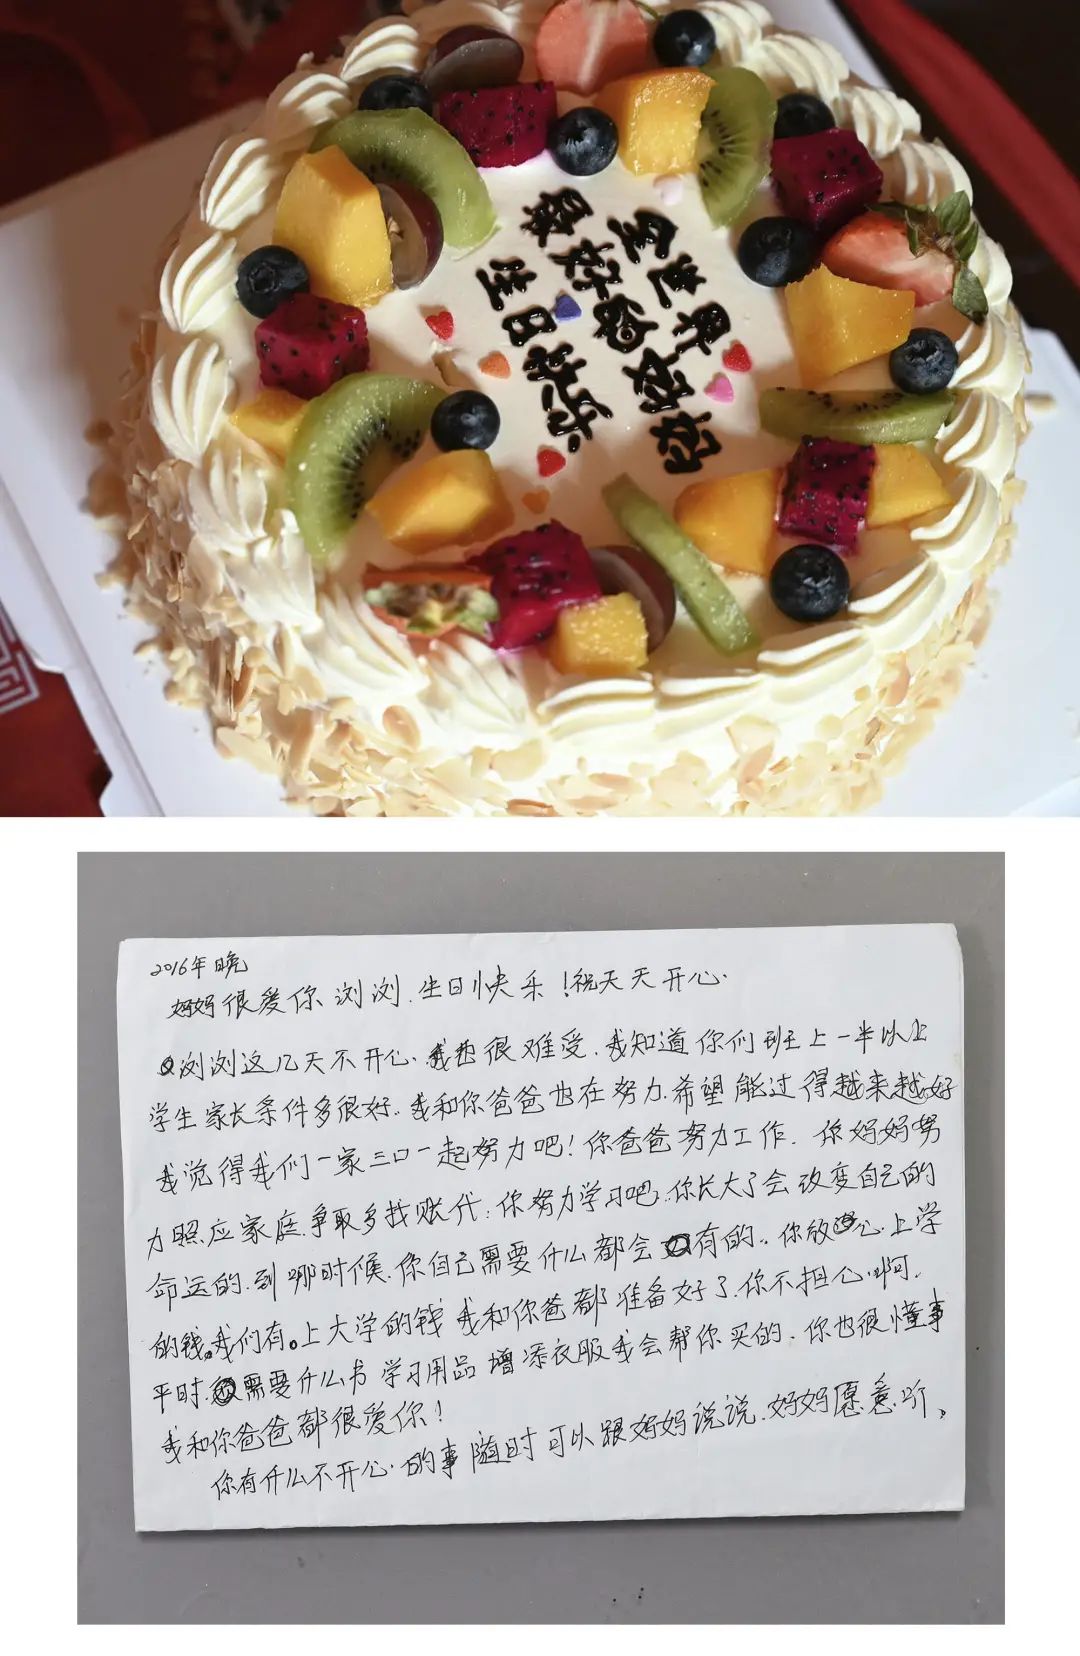 全世界
最好的奶奶
生日快乐
2016年 晚
妈妈很爱你浏浏.生日快乐！祝天天开心.
浏浏这几天不开心.我也很难受.我知道你们班上一半以上
学生家长条件多很好.我和你爸爸也在努力.希望能过得越来越好
我觉得我们一家三口一起努力吧！你爸爸努力工作.你妈妈努
力照应家庭.争取多找账代.你努力学习吧.你长大了会改变自己的
命运的.到哪时候.你自己需要什么都会有的.你放心上学
的钱。我们有。上大学的钱我和你爸都准备好了.你不担心啊.
平时.需要什么书学习用品增添衣服我会帮你买的.你也很懂事
我和你爸爸都很爱你！
你有什么不开心.的事随时可以跟妈妈说说.妈妈愿意听、